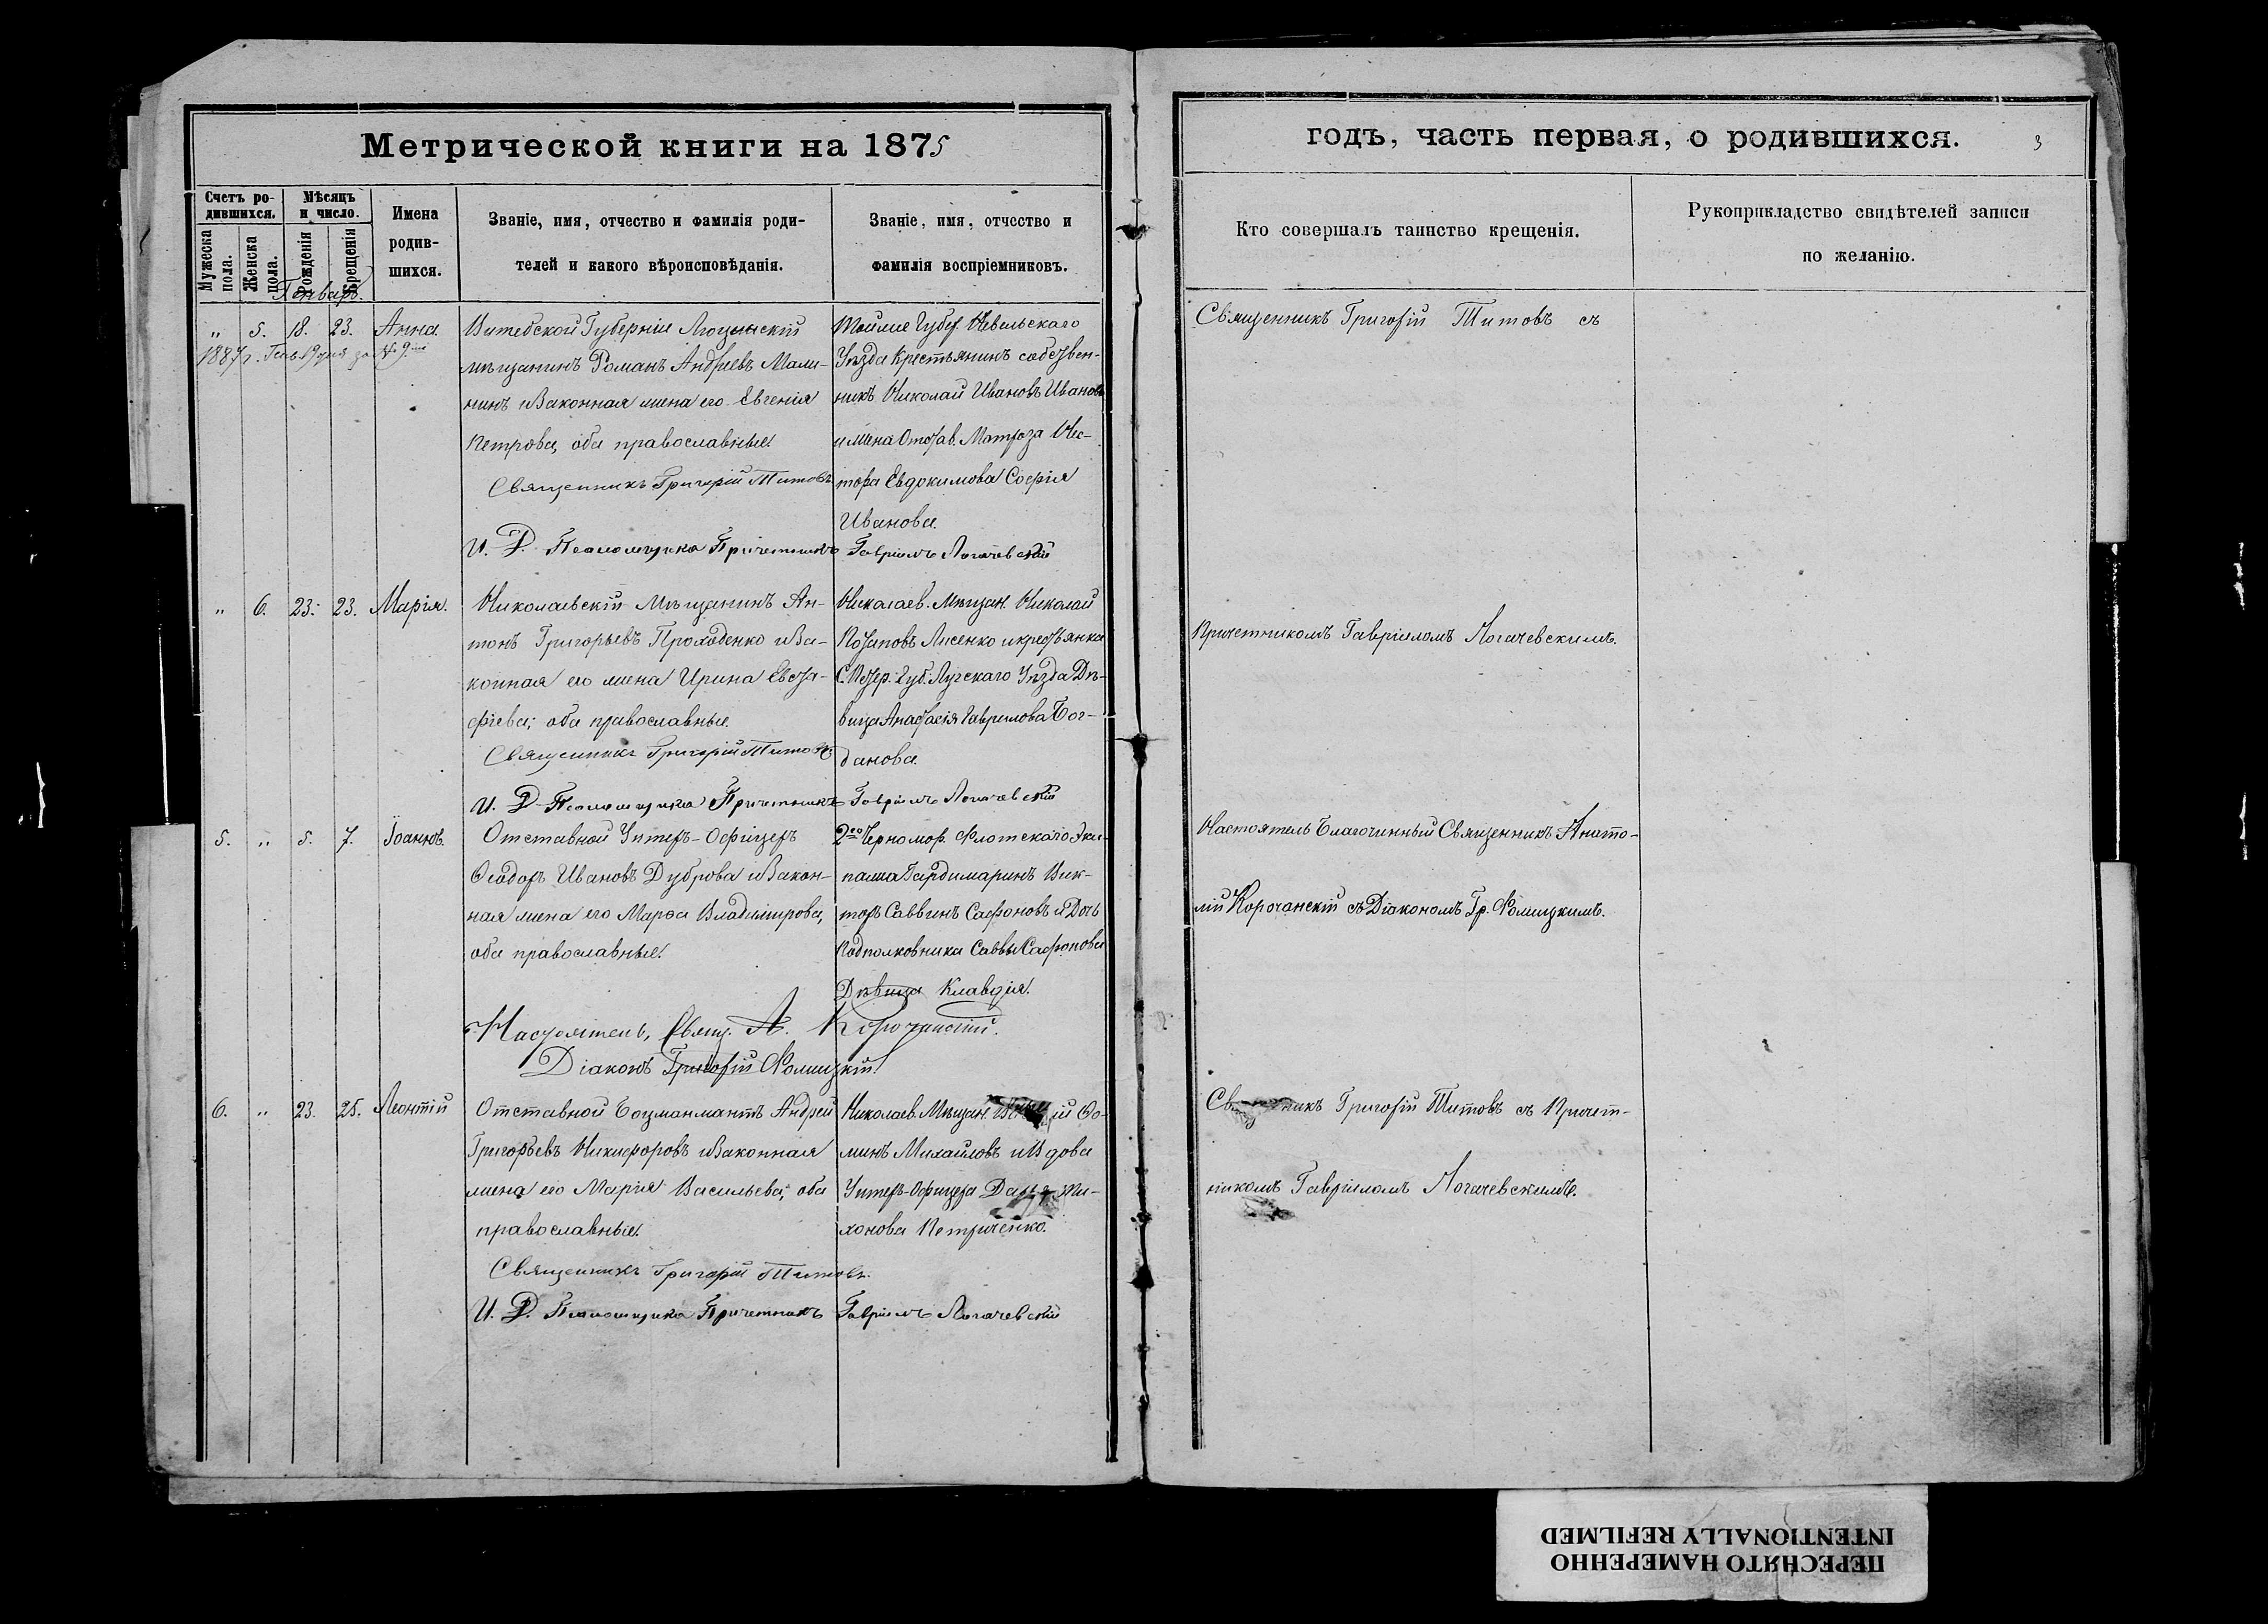 Метрической книги на 1875
годъ, часть первая, о родившихся.
3
Счетъ ро-
дившихся.
Мѣсяцъ
и число.
Мужеска пола.
Женска пола.
Рожденія
Крещенія
Имена
родив-
шихся.
Званіе, имя, отчество и фамилія роди-
телей и какого вѣроисповѣданія.
Званіе, имя, отчество и
фамилія воспріемниковъ.
Кто совершалъ таинство крещенія.
Рукоприкладство свидѣтелей записи
по желанію.
Генварь.
" 5. 18. 23. Анна
1887 г. Генв. 19 дня за № 9
Витебской Губерніи
мѣщанинъ Романъ Андреевъ Мали-
нинъ и Законная жена его Евгенія
Петрова, оба православные.
Священникъ Григорій Титовъ
И. Д. Псаломщика Причетникъ
Тойже Губер. Невельскаго
Уѣзда Крестьянинъ собствен-
никъ Николай Ивановъ Ивановъ
и жена Отстав. Матроза Нес-
тора Евдокимова Софія
Иванова.
Гавріилъ Логачевскій
Священникъ Григорій Титовъ съ
Причетникомъ Гавріиломъ Логачевскимъ.
" 6. 23. 23. Марія.
Николаевскій Мѣщанинъ Ан-
тонъ Григорьевъ Проходенко и За-
конная его жена Ирина Евста-
фіева; оба православные.
Священникъ Григорій Титовъ
И. Д. Псаломщика Причетникъ
Николаев. Мѣщан. Николай
Потаповъ Лисенко и крестьянка
С. Петер. Губ. Лугскаго Уѣзда Дѣ-
вица Анастасія Гаврилова Бог-
данова.
Гавріилъ Логачевскій
5. " 5. 7. Іоаннъ.
Отставной Унтеръ-Офицеръ
Ѳеодоръ Ивановъ Дуброва и Закон-
ная жена его Марѳа Владимірова,
оба православные.
2го Черномор. Флотскаго Эки-
пажа Гардимаринъ Вик-
торъ Саввинъ Сафоновъ и Дочь
Подполковника Саввы Сафонова
Дѣвица Клавдія.
Настоятель, Свящ. А. Корочанскій.
Діаконъ Григорій Фомицкій
Настоятель Благочинный Священникъ Анато-
лій Корочанскій съ Діакономъ Гр. Фомицкимъ.
6. " 23. 25. Леонтій
Отставной Боцманматъ Андрей
Григорьевъ Никифоровъ и Законная
жена его Марія Васильева; оба
православные.
Священникъ Григорій Титовъ.
И. Д. Псаломщика Причетникъ
Николаев. Мѣщан. Ѳо-
минъ Михайловъ и Вдова
Унтеръ-Офицера Дарья Ти-
хонова Петриченко.
Гавріилъ Логачевскій
Священникъ Григорій Титовъ съ Причет-
никомъ Гавріиломъ Логачевскимъ.
ПЕРЕСНЯТО НАМЕРЕННО
INTENTIONALLY REFILMED